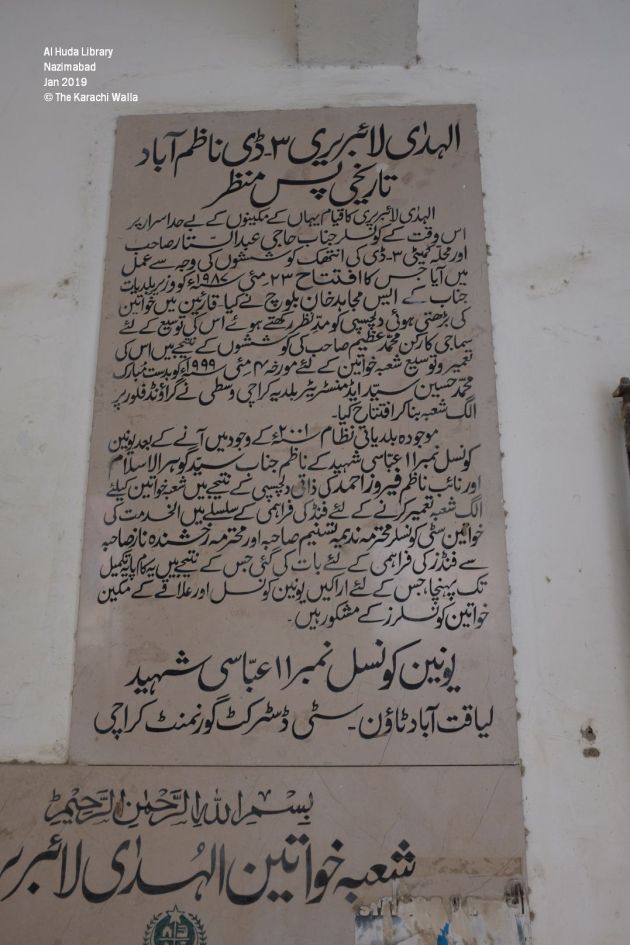 Al Huda Library
Nazimabad
Jan 2019
© The Karachi Walla
الہدٰی لائبریری ۳-ڈی ناظم آباد
تاریخی پس منظر
الہدٰی لائبریری کا قیام یہاں کے مکینوں کے بے حد اسرار پر
اس وقت کے کونسلر جناب حاجی عبدالستار صاحب
اور محلہ کمیٹی ۳-ڈی کی انتھک کوششوں کی وجہ سے عمل
میں آیا جس کا افتتاح ۲۳ مئی ۱۹۸۷ء کو وزیر بلدیات
جناب کے ایس مجاہد خان بلوچ نے کیا۔ قارئین میں خواتین
کی بڑھتی ہوئی دلچسپی کو مدِّنظر رکھتے ہوئے اس کی توسیع کے لئے
سماجی کارکن محمد عظیم صاحب کی کوششوں کے نتیجے میں اس کی
تعمیر و توسیع شعبہ خواتین کے لئے مورخہ ۴ مئی ۱۹۹۹ء کو بدست مبارک
محمد حسین سیّد ایڈمنسٹریٹر بلدیہ کراچی وسطی نے گراؤنڈ فلور پر
الگ شعبہ بنا کر افتتاح کیا۔
موجودہ بلدیاتی نظام ۲۰۰۱ء کے وجود میں آنے کے بعد یونین
کونسل نمبر ۱۱ عباسی شہید کے ناظم جناب سیّد گوہر الاسلام
اور نائب ناظم فیروز احمد کی ذاتی دلچسپی کے نتیجے میں شعبہ خواتین کیلئے
الگ شعبہ تعمیر کرنے کے لئے فنڈ کی فراہمی کے سلسلے میں الخدمت کی
خواتین سٹی کونسلر محترمہ ندیمہ تسنیم صاحبہ اور محترمہ رخشندہ ناز صاحبہ
سے فنڈز کی فراہمی کے لئے بات کی گئی جس کے نتیجے میں یہ کام پایہ تکمیل
تک پہنچا، جس کے لئے اراکین یونین کونسل اور علاقے کے مکین
خواتین کونسلرز کے مشکور ہیں۔
یونین کونسل نمبر ۱۱ عبّاسی شہید
لیاقت آباد ٹاؤن - سٹی ڈسٹرکٹ گورنمنٹ کراچی
بِسْمِ اللهِ الرَّحْمٰنِ الرَّحِيْمِ
شعبہ خواتین الہُدٰی لائبریر